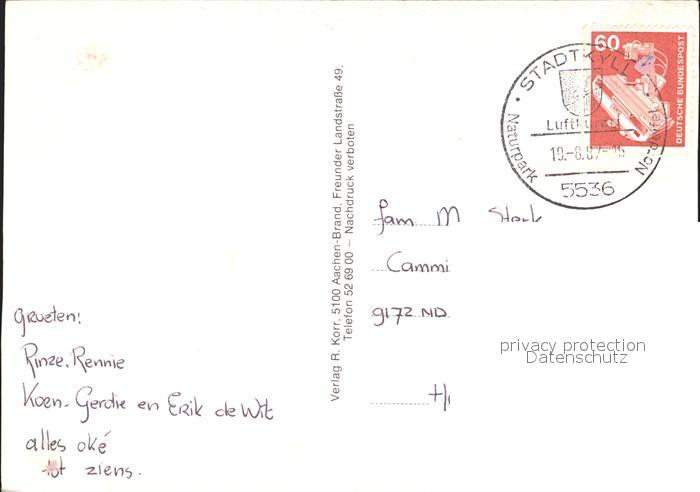 Grueten:
Rinze. Rennie
Koen - Gerdie en Erik de Wit
alles oké
tot ziens.
Verlag R. Korr, 5100 Aachen-Brand, Freunder Landstraße 49,
Telefon 52 69 00 – Nachdruck verboten
60
DEUTSCHE BUNDESPOST
STADTKYLL
Naturpark
5536
fam M
Cammi
9172 ND
privacy protection
Datenschutz